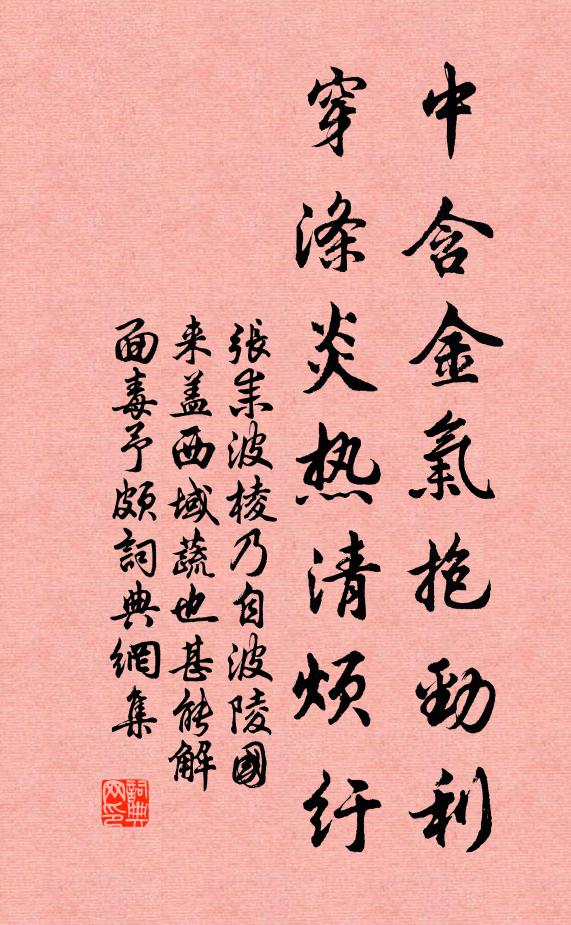 中含金氣抱勁利
穿滌炎热清煩紆
張耒波棱乃自波陵國
来盖西域蔬也甚能解
面毒予頗詞典網集
詞典
网印